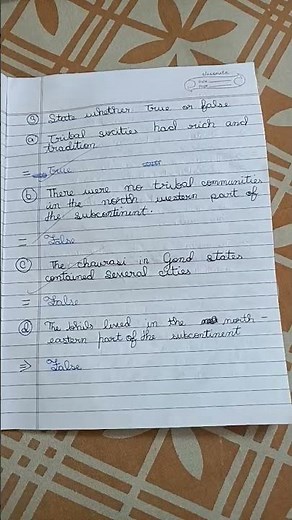 ③ State whether True or false
ⓐ Tribal societies had rich and
tradition
= True
ⓑ There were no tribal communities
in the north western part of
the subcontinent.
= False
ⓒ The chaurasi in Gond states
contained several cities
= False
ⓓ The bhils lived in the north-
eastern part of the subcontinent
⇒ False